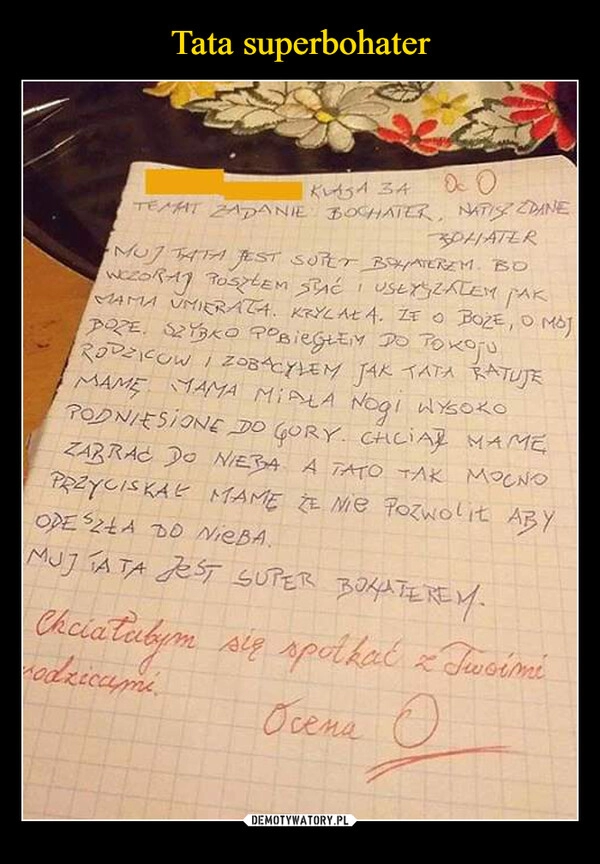 Tata superbohater
KLASA 3A Oc O
TEMAT ZADANIE BOCHATER, NAPISZ ZDANIE
BOHATER
MUJ TATA JEST SUPER BOHATEREM. BO
WCZORAJ POSZŁEM SPAĆ I USŁYSZAŁEM JAK
MAMA UMIERAŁA. KRZYCAŁA. ŻE O BOŻE, O MÓJ
BOŻE. SZYBKO POBIEGŁEM DO POKOJU
RODZICUW I ZOBACYŁEM JAK TATA RATUJE
MAMĘ. MAMA MIAŁA NOGI WYSOKO
PODNIESIONE DO GÓRY. CHCIAŁ MAMĘ
ZABRAĆ DO NIEBA A TATO TAK MOCNO
PRZYCISKAŁ MAMĘ ŻE NIE POZWOLIŁ ABY
ODESZŁA DO NIEBA.
MUJ TATA JEST SUPER BOHATEREM.
Chciałabym się spotkać z Twoimi
rodzicami.
Ocena O
DEMOTYWATORY.PL